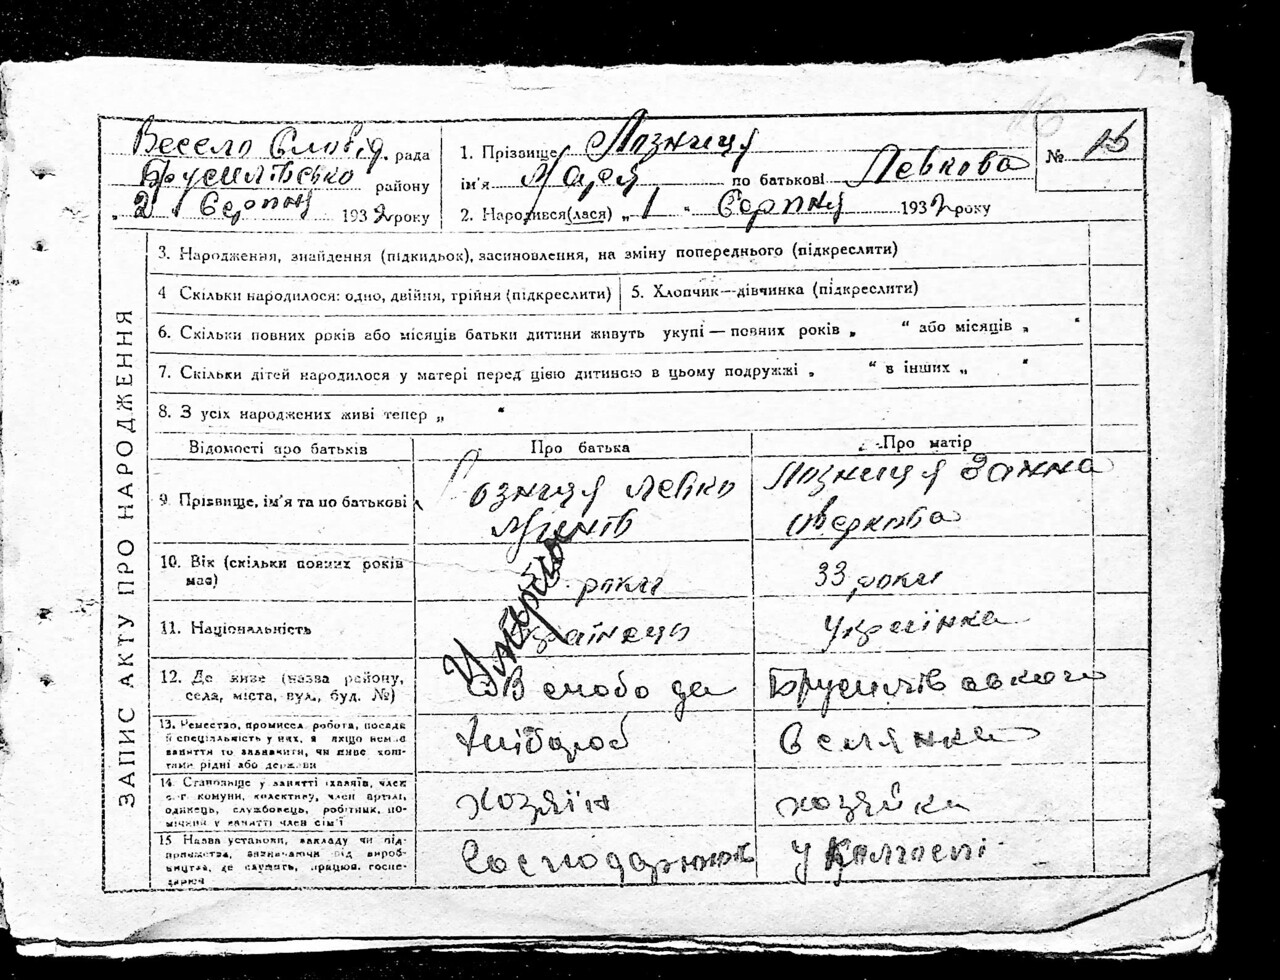 Весело Слобід. рада
Брусилівсько району
„ 2 " Серпня 1932 року
1. Прізвище Лозниця
ім'я Марея по батькові Левкова
2. Народився(лася) „ 1 " Серпня 1932 року
№ 15
ЗАПИС АКТУ ПРО НАРОДЖЕННЯ
3. Народження, знайдення (підкидьок), засиновлення, на зміну попереднього (підкреслити)
4 Скільки народилося: одно, двійня, трійня (підкреслити)
5. Хлопчик—дівчинка (підкреслити)
6. Скільки повних років або місяців батьки дитини живуть укупі — повних років „ “ або місяців „ “
7. Скільки дітей народилося у матері перед цією дитиною в цьому подружжі „ “ в інших „ “
8. З усіх народжених живі тепер „ “
Відомості про батьків
Про батька
Про матір
9. Прізвище, ім'я та по батькові
Лозниця Левко
Лозниця Ганна
Оверкова
10. Вік (скільки повних років
має)
роки
33 роки
11. Національність
Українець
Українка
12. Де живе (назва району,
села, міста, вул., буд. №)
В слобода
Брусилівського
13. Ремество, промисел, робота, посада
й спеціяльність у них, а якщо немає
заняття то зазначити, чи живе кош-
тами рідні або держави
Хлібороб
Селянка
14. Становище у занятті (хазяїн, член
с.-г комуни, колективу, член артілі,
одинець, службовець, робітник, по-
мічний у занятті член сім'ї
хозяїн
хозяйка
15 Назва установи, закладу чи під-
приємства, зазначаючи рід вироб-
ництва, де служить, працює, госпо-
дарює
у Колгоспі